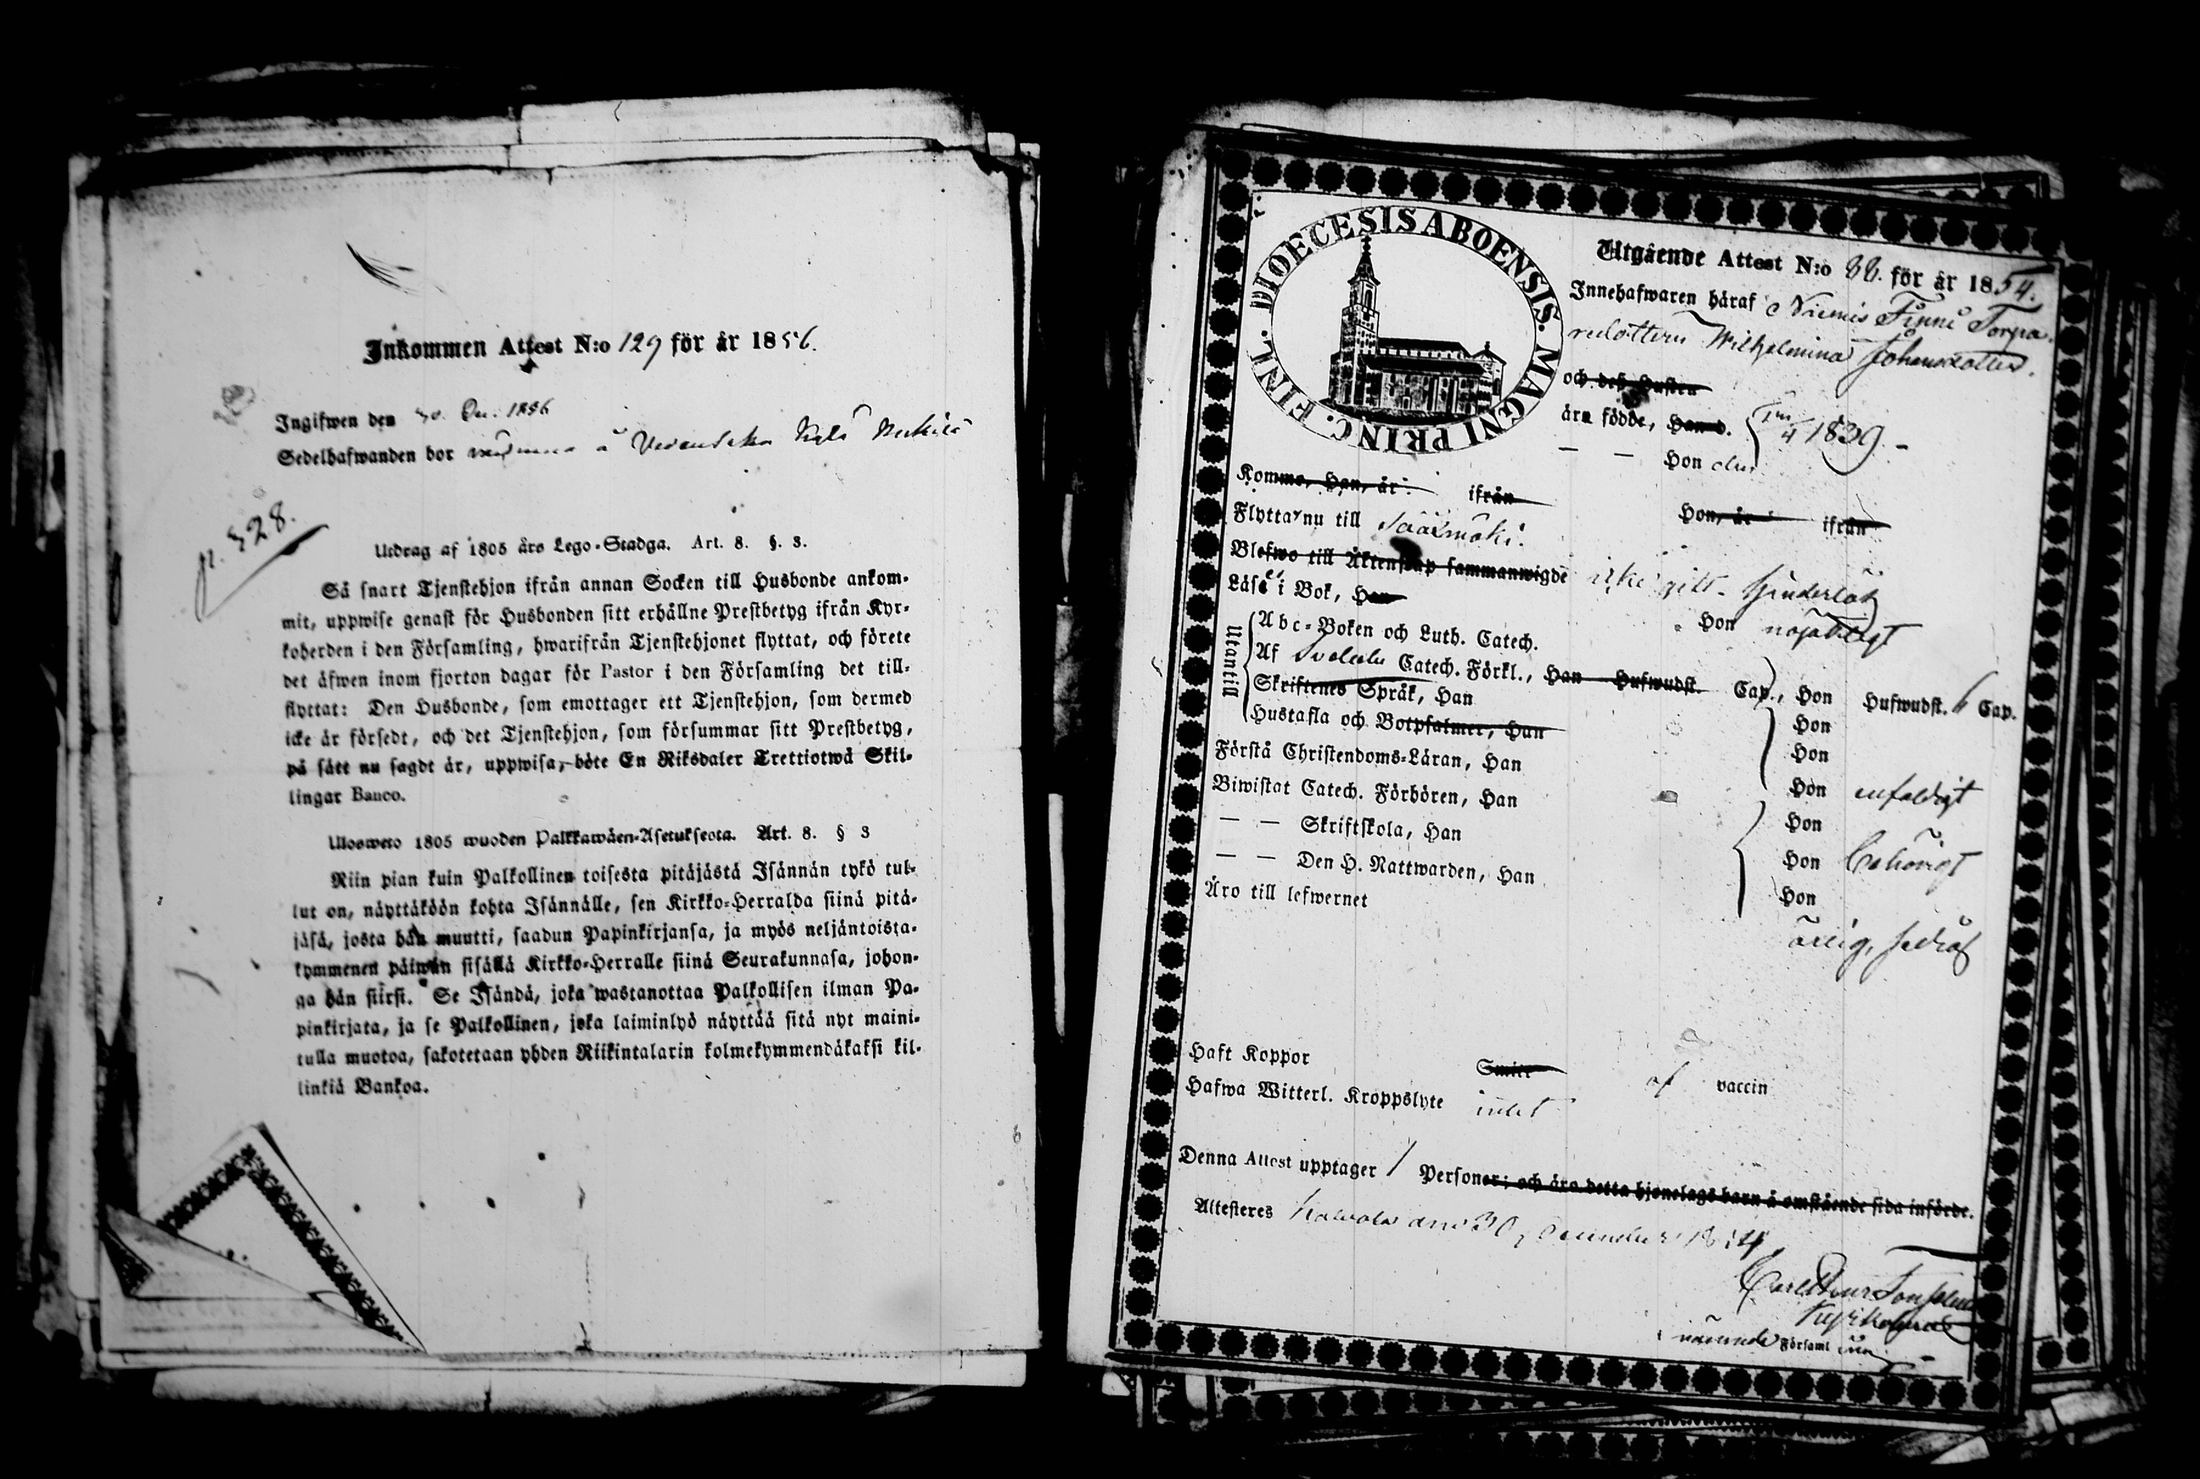 Inkommen Attest N:o 129 för år 1856.
Ingifwen den 30. Dec. 1856
Sedelhafwanden bor å
p. 328.
Utdrag af 1805 års Lego-Stadga. Art. 8. §. 3.
Så snart Tjenstehjon ifrån annan Socken till Husbonde ankom-
mit, uppwise genast för Husbonden sitt erhållne Prestbetyg ifrån Kyr-
koherden i den Församling, hwarifrån Tjenstehjonet flyttat, och förete
det äfwen inom fjorton dagar för Pastor i den Församling det till-
flyttat: Den Husbonde, som emottager ett Tjenstehjon, som dermed
icke är försedt, och det Tjenstehjon, som försummar sitt Prestbetyg,
på sätt nu sagdt är, uppwisa, böte En Riksdaler Trettiotwå Skil-
lingar Banco.
Ulosweto 1805 wuoden Palkkawäen-Asetuksesta. Art. 8. § 3
Niin pian kuin Palkollinen toisesta pitäjästä Isännän tykö tul-
lut on, näyttäköön kohta Isännälle, sen Kirkko-Herralda siinä pitä-
jäsä, josta hän muutti, saadun Papinkirjansa, ja myös neljäntoista-
kymmenen päiwän sisällä Kirkko-Herralle siinä Seurakunnasa, johon-
ga hän siirsi. Se Isändä, joka wastanottaa Palkollisen ilman Pa-
pinkirjata, ja se Palkollinen, joka laiminlyö näyttää sitä nyt maini-
tulla muotoa, sakotetaan yhden Riikintalarin kolmekymmendäkaksi kil-
linkiä Bankoa.
DIOECESIS ABOENSIS. MAGNI PRINC. FINL.
Utgående Attest N:o 88. för år 1854.
Innehafwaren häraf Niemis Finni Torpa-
redottern Wilhelmina Johansdotter.
och deß Hustru
äro födde, Han d. 1839.
— — Hon den
Kommo, Han, år ifrån Hon, år ifrån
Flyttar nu till Sääxmäki.
Blefwo till Äktenskap sammanwigde icke gift. hinderlös
Läser i Bok, Han Hon nöjaktigt
Utantill
Abc-Boken och Luth. Catech.
Af Svebelii Catech. Förkl., Han Hufwudst. Cap., Hon Hufwudst. 6 Cap.
Skriftenes Språk, Han Hon
Hustafla och Botpsalmer, Han Hon
Förstå Christendoms-Läran, Han Hon enfaldigt
Biwistat Catech. Förhören, Han Hon
— — Skriftskola, Han Hon behörigt
— — Den H. Nattwarden, Han Hon
Äro till lefwernet ärlig,
Haft Koppor Smitt af vaccin
Hafwa Witterl. Kroppslyte intet
Denna Attest upptager 1 Personer; och äro detta hjonelags barn å omstående sida införde.
Attesteres Kalvola den 30 December 1854
Carl
Församl